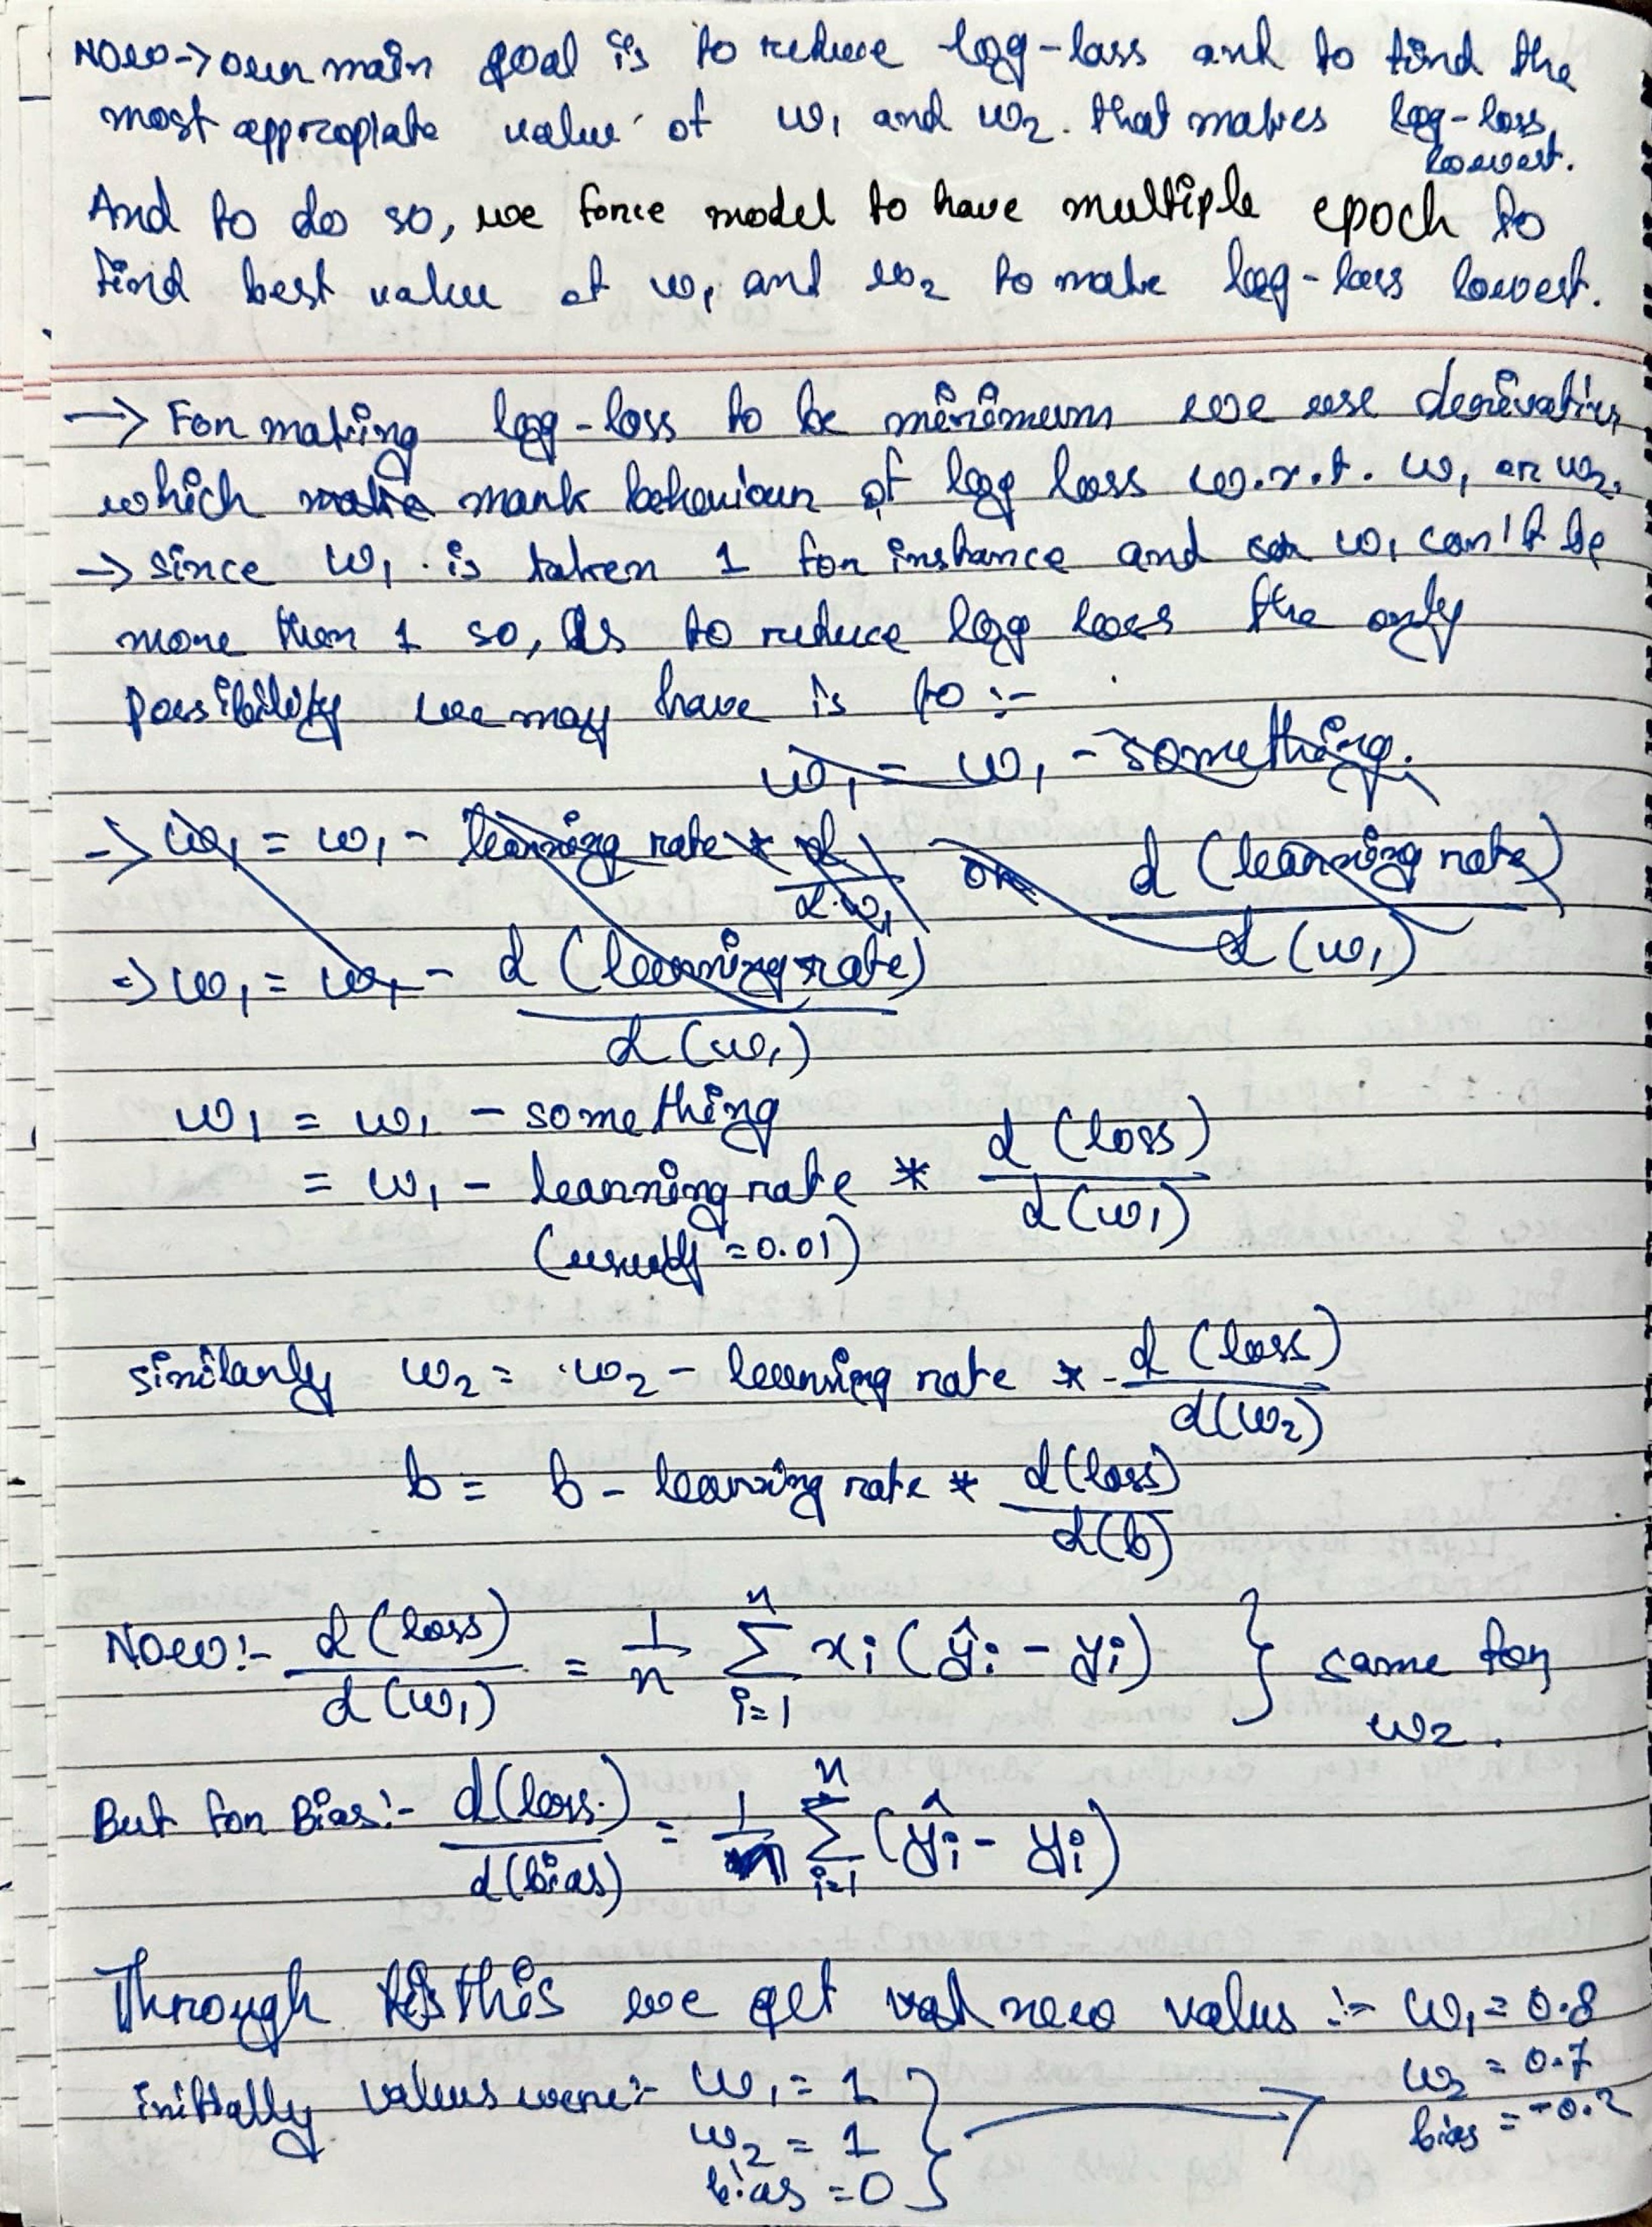 Now → our main goal is to reduce log-loss and to find the
most appropiate value of w₁ and w₂. that makes log-loss
lowest.
And to do so, we force model to have multiple epoch to
find best value of w₁ and w₂ to make log-loss lowest.
→ For making log-loss to be minimum we use derivatives
which make mark behaviour of log loss w.r.t. w₁ or w₂.
→ since w₁ is taken 1 for instance and w₁ can't be
more then 1 so, as to reduce log loss the only
possibility we may have is to :-
w₁ = w₁ - something.
→ w₁ = w₁ - learning rate * d/d.w₁ or d (learning rate)/d (w₁)
⇒ w₁ = w₁ - d (learning rate)/d (w₁)
w₁ = w₁ - something
= w₁ - learning rate * d (loss)/d (w₁)
(usually = 0.01)
similarly w₂ = w₂ - learning rate * d (loss)/d(w₂)
b = b - learning rate * d(loss)/d(b)
Now:- d (loss)/d (w₁) = 1/n n∑i=1 xi (ŷi - yi) } same for
w₂.
But for Bias:- d(loss.)/d(bias) = 1/n n∑i=1 (ŷi - yi)
Through this we get new values :- w₁ = 0.8
w₂ = 0.7
bias = -0.2
initially values were:- w₁ = 1
w₂ = 1
bias = 0 } →